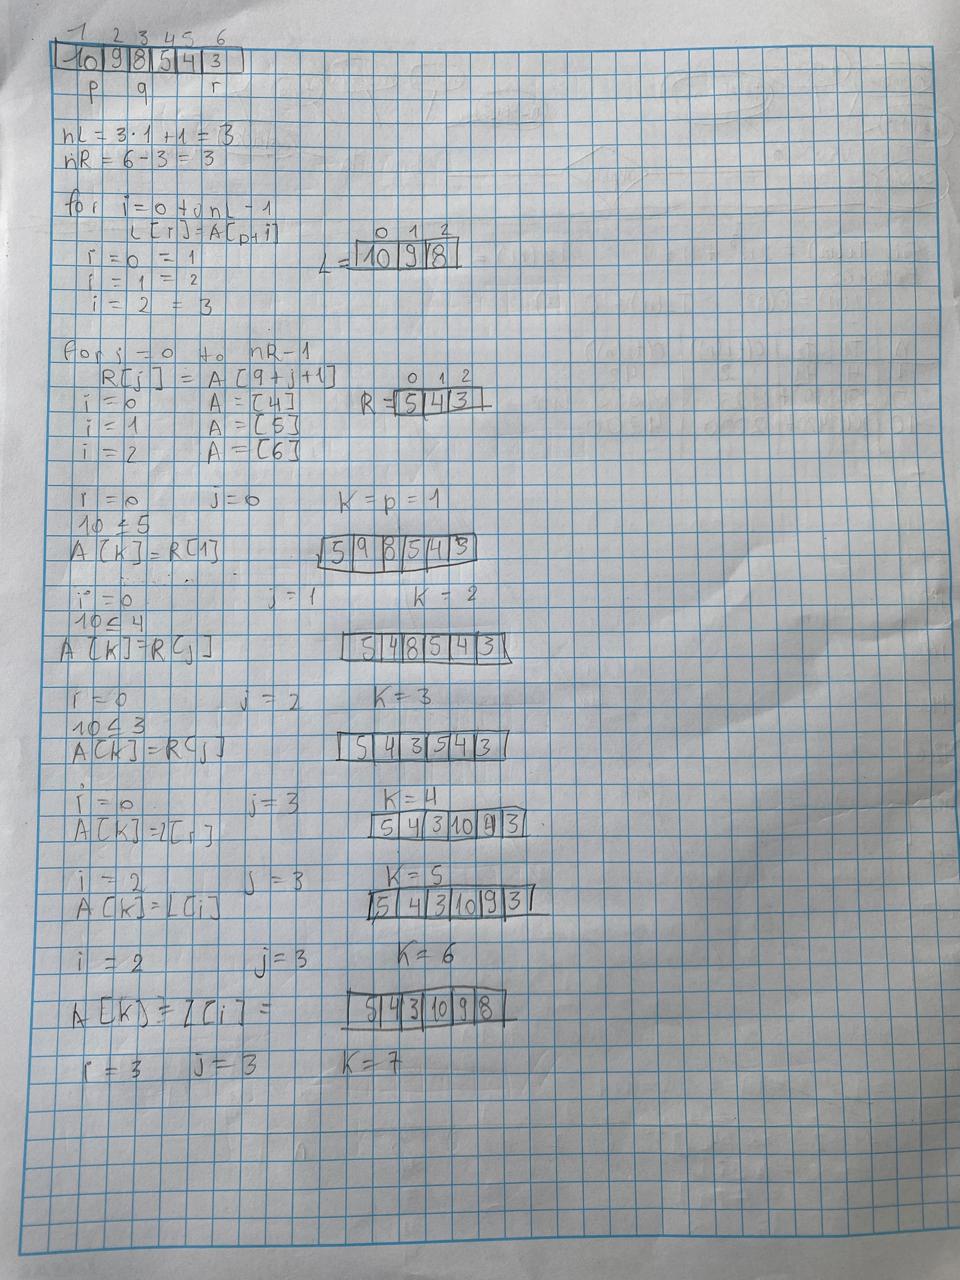 1 2 3 4 5 6
10 9 8 5 4 3
p q r
nL = 3 · 1 + 1 = 3
nR = 6 - 3 = 3
for i = 0 to nL - 1
L[i] = A[p+i]
i = 0 = 1
i = 1 = 2
i = 2 = 3
0 1 2
L = 10 9 8
for j = 0 to nR - 1
R[j] = A[9+j+1]
i = 0 A = [4]
i = 1 A = [5]
i = 2 A = [6]
0 1 2
R = 5 4 3
i = 0 j = 0 K = p = 1
10 ≤ 5
A[K] = R[1] 5 9 8 5 4 3
i = 0 j = 1 K = 2
10 ≤ 4
A[K] = R[j] 5 4 8 5 4 3
i = 0 j = 2 K = 3
10 ≤ 3
A[K] = R[j] 5 4 3 5 4 3
i = 0 j = 3 K = 4
A[K] = L[i] 5 4 3 10 4 3
i = 2 j = 3 K = 5
A[K] = L[i] 5 4 3 10 9 3
i = 2 j = 3 K = 6
A[K] = L[i] = 5 4 3 10 9 8
i = 3 j = 3 K = 7